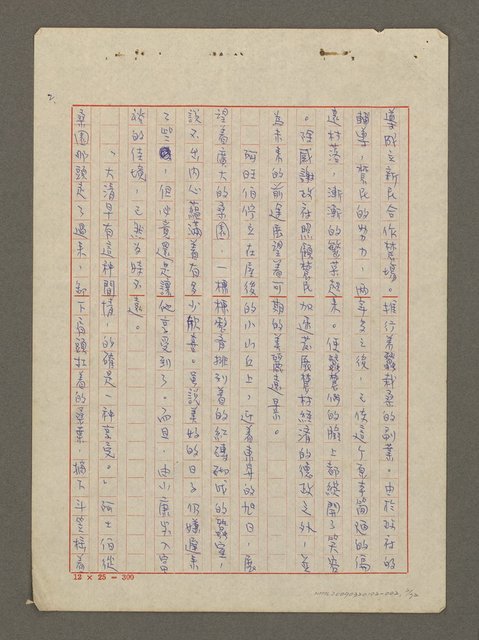 2.
導成立新民合作農場。推行養蠶栽桑的副業。由於政府的
輔導，農民的努力，兩年多之後，已使這個原來簡陋的偏
遠村落，漸漸的繁榮起來。使蠶農們的臉上都綻開了笑容
。除感謝政府照顧農民加速發展農村經濟的德政之外，並
為未來的前途展望着可期的美麗遠景。
阿旺伯佇立在屋後的小山丘上，迎着東昇的旭日，展
望着廣大的桑園，一棟棟整齊排列着的紅磚砌成的蠶室，
說不出內心蘊滿着有多少歡喜。雖說美好的日子仍嫌遲來
了些，但必竟還是讓他享受到了。而且，由小康步入富
裕的佳境，已然為時不遠。
「大清早有這種閒情，的確是一種享受。」阿土伯從
桑園那頭走了過來，卸下肩頭扛着的桑葉，摘下斗笠搖着
12 × 25 = 300
NMTL20090220102-002